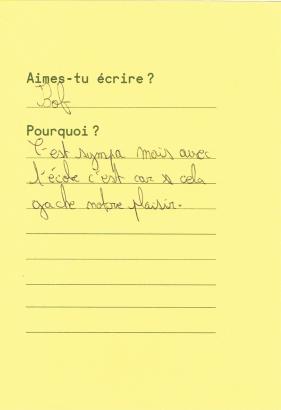 Aimes-tu écrire ?
Bof
Pourquoi ?
C'est sympa mais avec
l'école c'est car cela
gache notre plaisir.